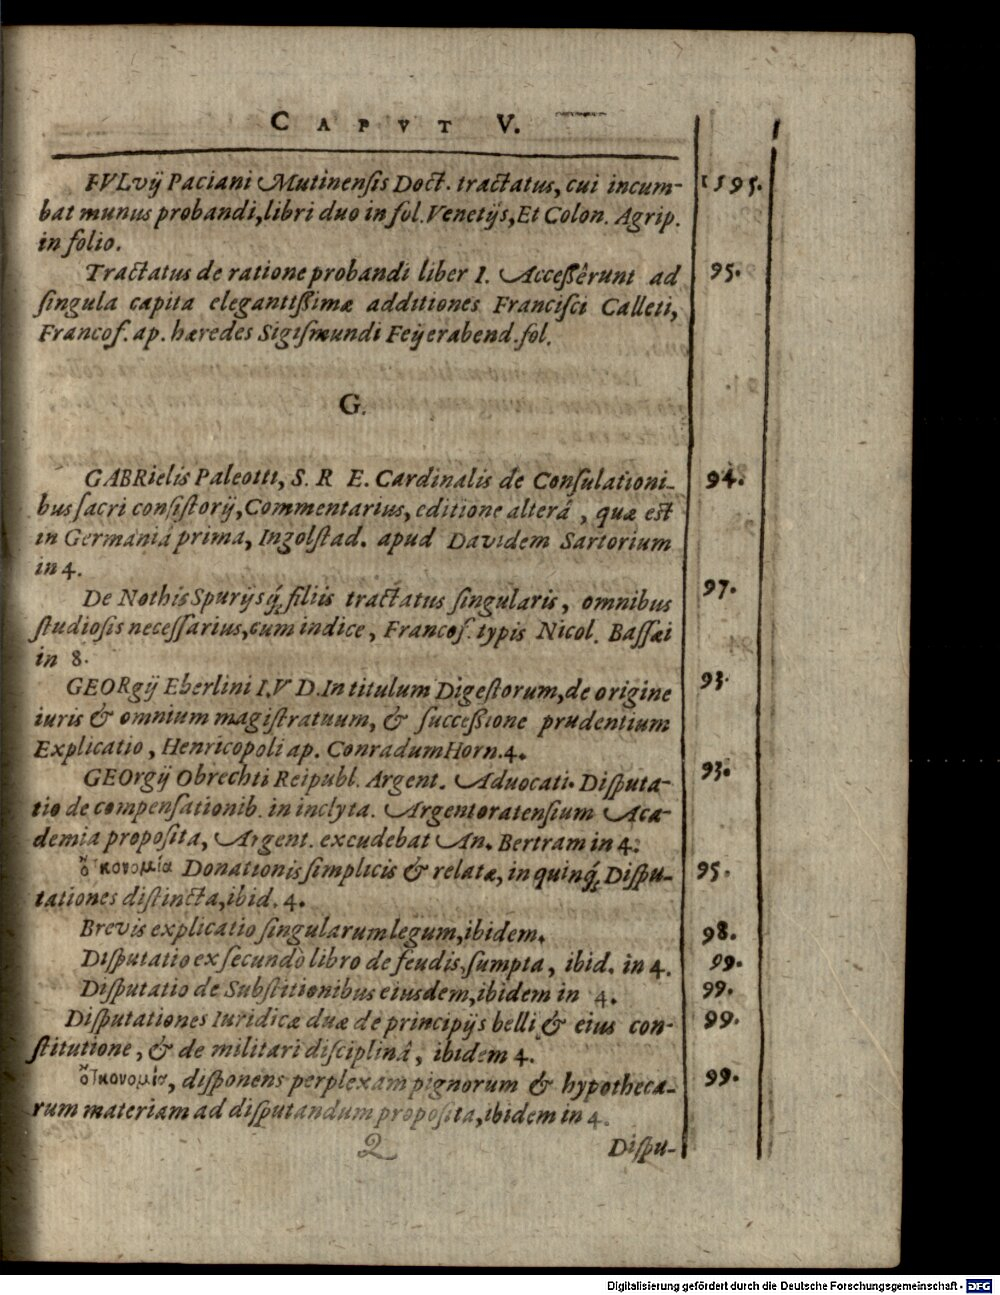 CAPVT V.
FVLvij Paciani Mutinensis Doct. tractatus, cui incum- 1595.
bat munus probandi, libri duo in fol. Venetijs, Et Colon. Agrip.
in folio.
Tractatus de ratione probandi liber I. Accessêrunt ad 95.
singula capita elegantissimæ additiones Francisci Calleti,
Francof. ap. hæredes Sigismundi Feÿerabend. fol.
G.
GABRielis Paleotti, S. R E. Cardinalis de Consulationi- 94.
bus sacri consistorij, Commentarius, editione alterâ, quæ est
in Germaniâ prima, Ingolstad. apud Davidem Sartorium
in 4.
De Nothis Spurijsq́; filiis tractatus singularis, omnibus 97.
studiosis necessarius, cum indice, Francof. typis Nicol. Bassæi
in 8.
GEORgij Eberlini I.V D. In titulum Digestorum, de origine 93.
iuris & omnium magistratuum, & successione prudentium
Explicatio, Henricopoli ap. Conradum Horn. 4.
GEOrgij Obrechti Reipubl. Argent. Aduocati. Disputa- 93.
tio de compensationib. in inclyta. Argentoratensium Aca-
demia proposita, Argent. excudebat An. Bertram in 4.
ὀικονομία Donationis simplicis & relatæ, in quinq́; Dispu- 95.
tationes distincta, ibid. 4.
Brevis explicatio singularum legum, ibidem. 98.
Disputatio ex secundò libro de feudis, sumpta, ibid. in 4. 99.
Disputatio de Substitionibus eiusdem, ibidem in 4. 99.
Disputationes Iuridicæ duæ de principijs belli & eius con- 99.
stitutione, & de militari disciplinâ, ibidem 4.
ὀικονομία, disponens perplexam pignorum & hypotheca- 99.
rum materiam ad disputandum proposita, ibidem in 4.
2
Dispu-
Digitalisierung gefördert durch die Deutsche Forschungsgemeinschaft - DFG